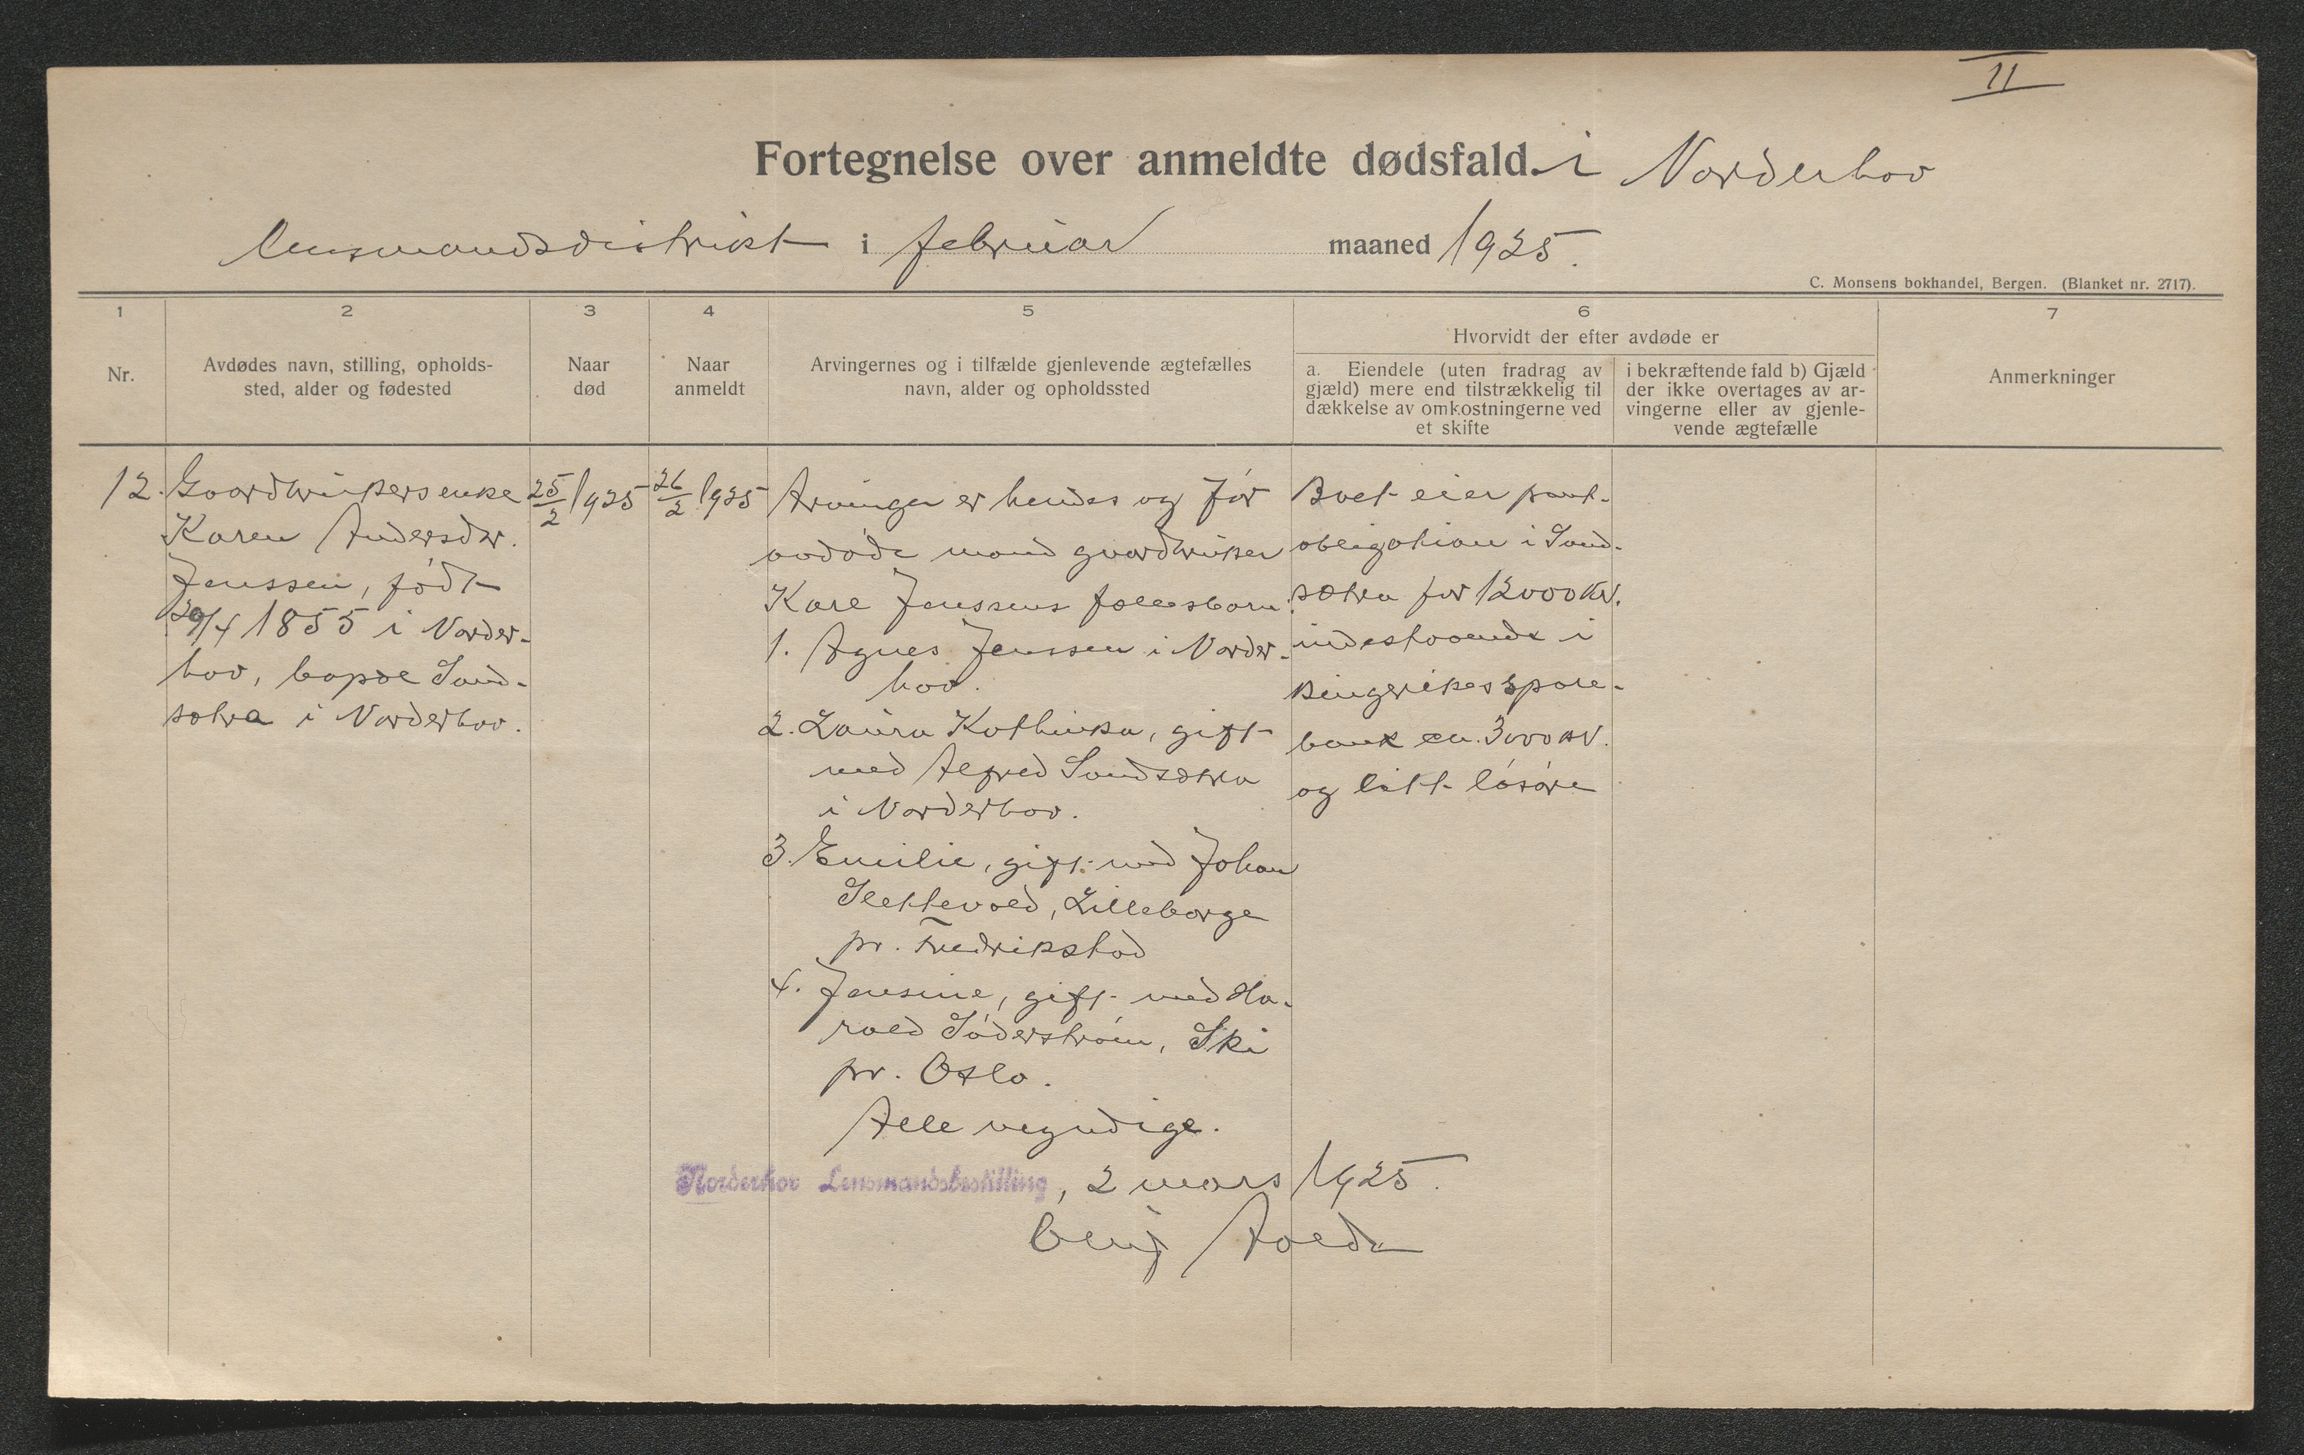 II
Fortegnelse over anmeldte dødsfald. i Norderhov
lensmandsdistrikt i februar maaned 1925.
C. Monsens bokhandel, Bergen. (Blanket nr. 2717).
1
2
3
4
5
6
7
Nr.
Avdødes navn, stilling, opholds-
sted, alder og fødested
Naar
død
Naar
anmeldt
Arvingernes og i tilfælde gjenlevende ægtefælles
navn, alder og opholdssted
Hvorvidt der efter avdøde er
a. Eiendele (uten fradrag av
gjæld) mere end tilstrækkelig til
dækkelse av omkostningerne ved
et skifte
i bekræftende fald b) Gjæld
der ikke overtages av ar-
vingerne eller av gjenle-
vende ægtefælle
Anmerkninger
12.
Gaardbrukersenke
Karen Andersdtr.
Jenssen, født
20/4 1855 i Norder-
hov, bopæl Sand-
sætra i Norderhov.
25/2 1925
26/2 1925
Arvinger er hendes og før
avdøde mand gaardbruker
Karl Jenssens fællesbarn:
1. Agnes Jenssen i Norder-
hov.
2. Laura Kathinka, gift
med Alfred Sandsætra
i Norderhov.
3. Emilie, gift med Johan
Slettevold, Lilleborge
pr. Fredrikstad
4. Jensine, gift med Ha-
rald Søderstrøm, Ski
pr. Oslo.
Alle myndige.
Boet eier pant-
obligation i Sand-
sætra for 12000 kr.
indestaaende i
Ringerikes spare-
bank ca. 3000 kr.
og litt løsøre
Norderhov Lensmandsbestilling, 2 mars 1925.